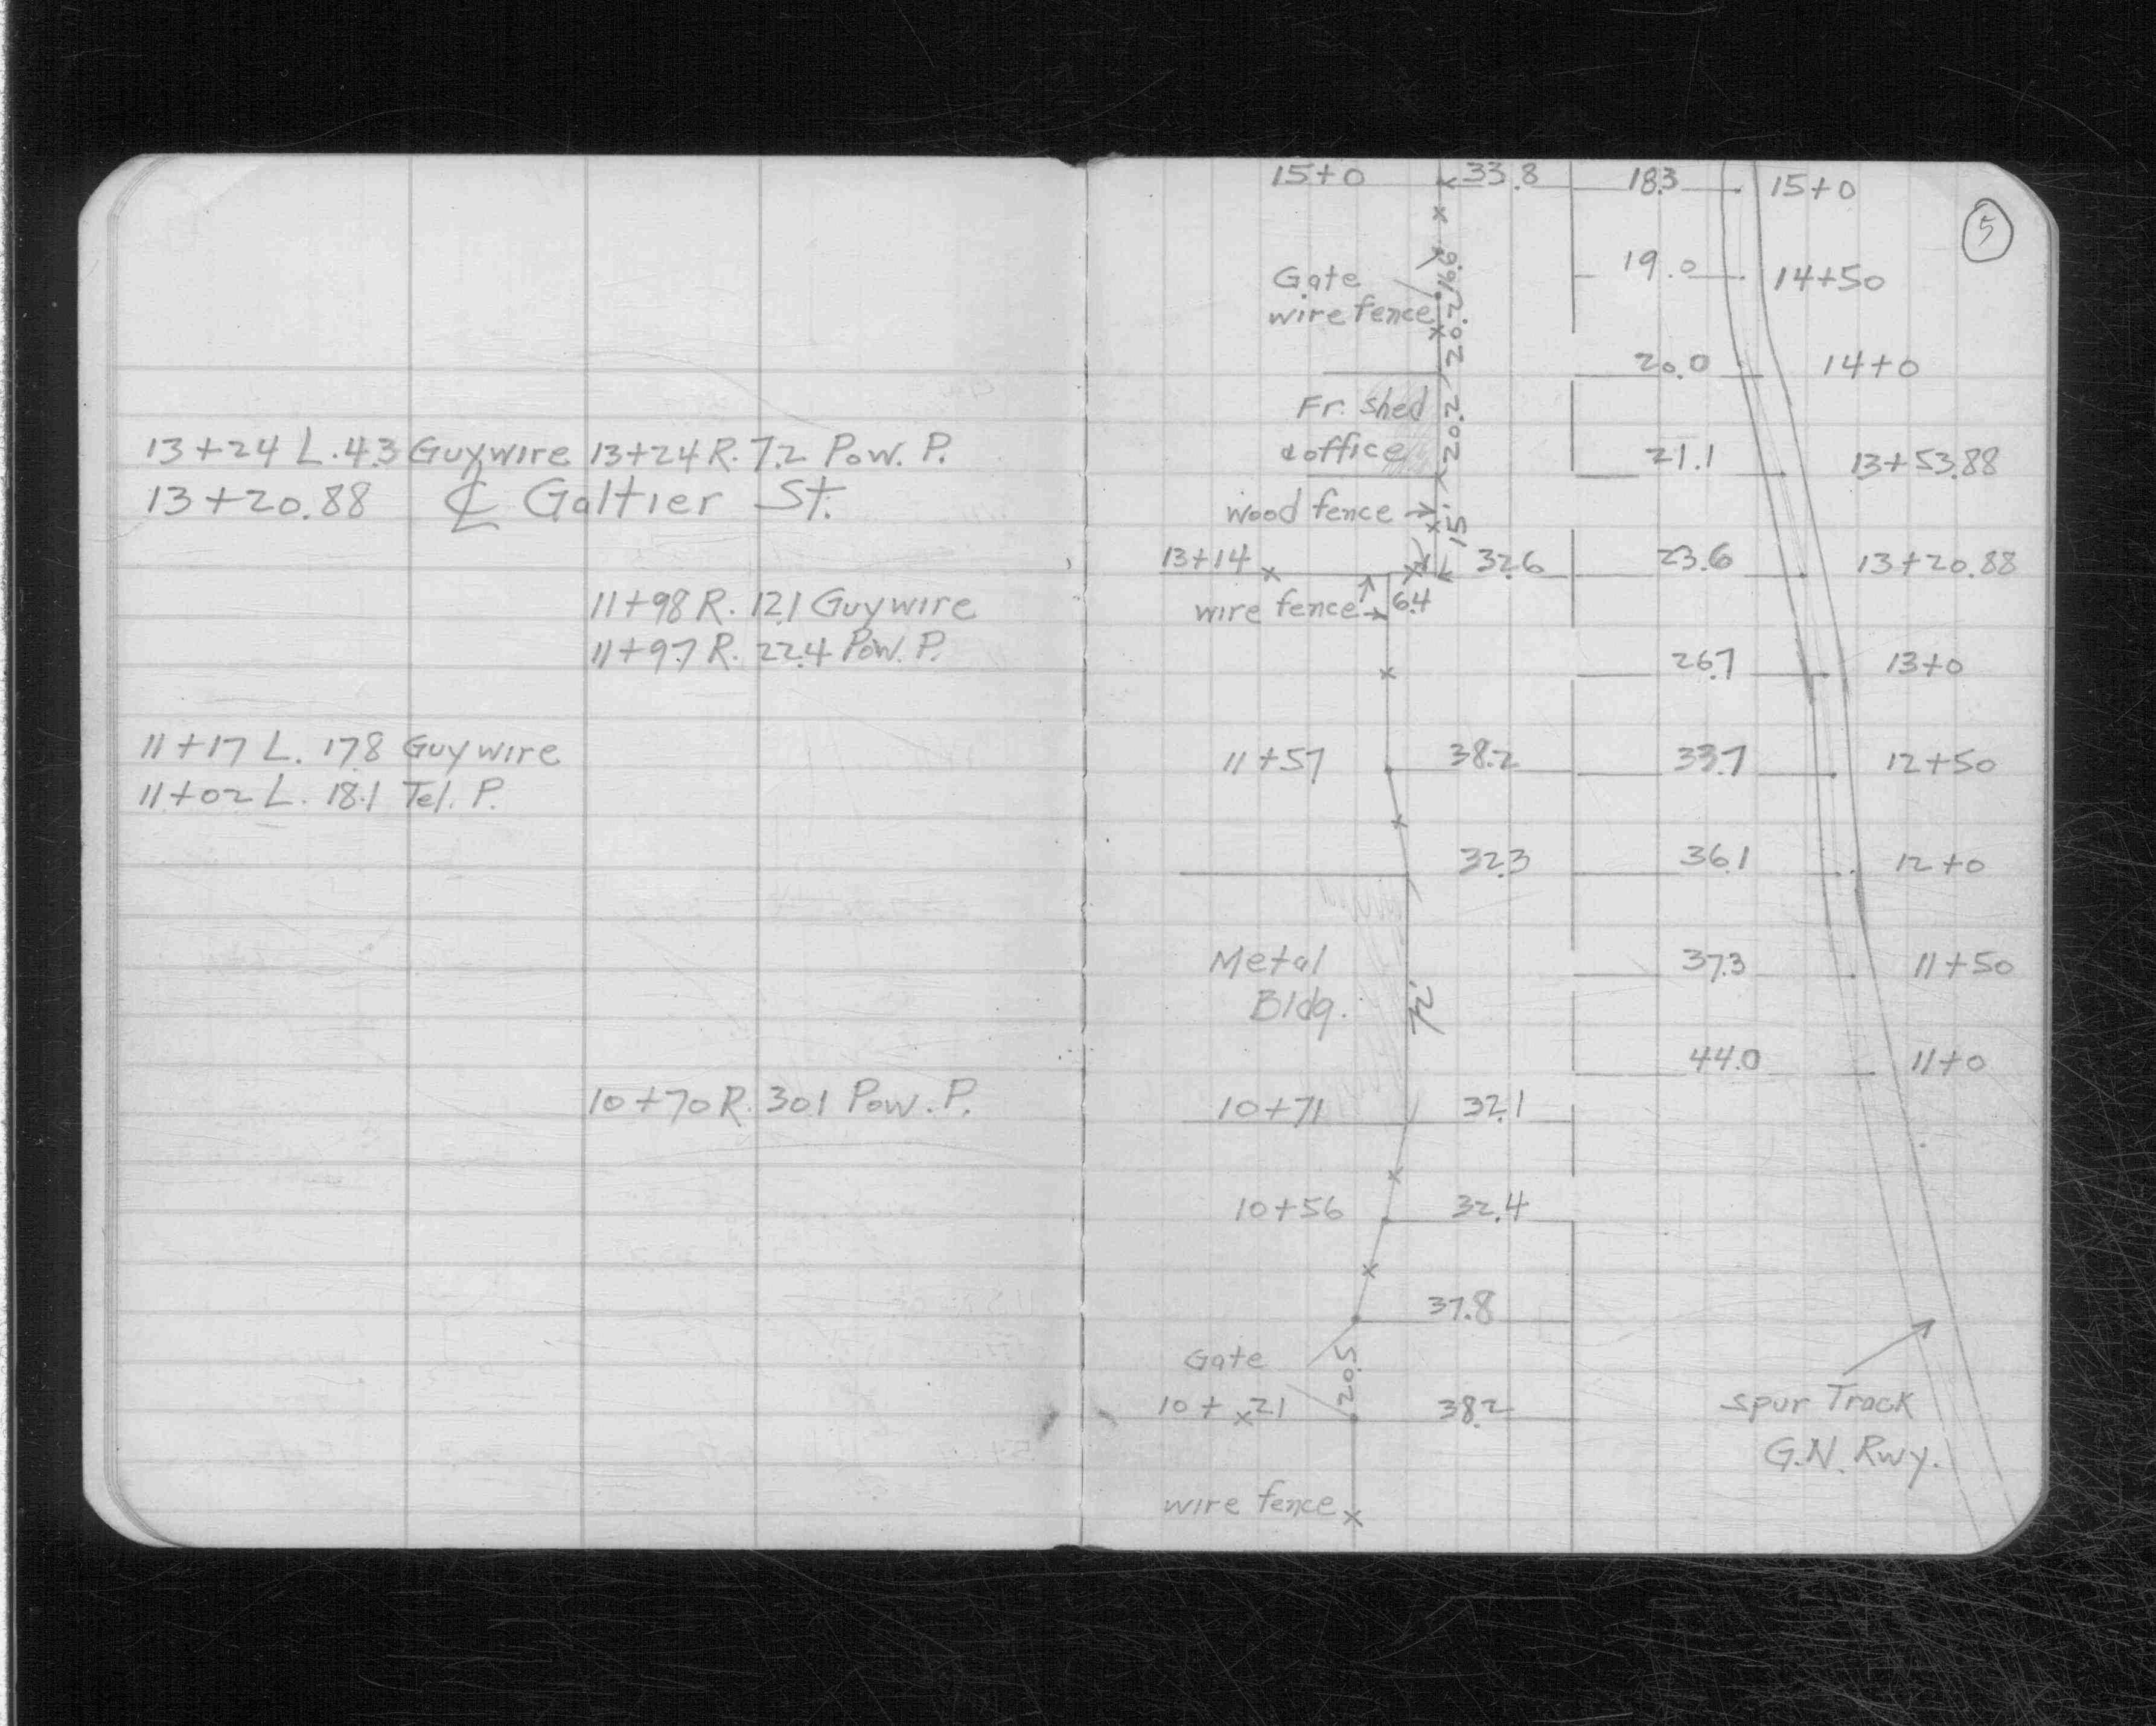 13+24 L. 4.3 Guywire 13+24 R. 7.2 Pow. P.
13+20.88 ℄ Galtier St.
11+98 R. 12.1 Guywire
11+97 R. 22.4 Pow. P.
11+17 L. 17.8 Guywire
11+02 L. 18.1 Tel. P.
10+70 R. 30.1 Pow. P.
5
15+0 33.8 18.3 15+0
19.0 14+50
Gate 16.9
wire fence 20.2
20.0 14+0
Fr. Shed
& office 20.2 21.1 13+53.88
wood fence 15'
13+14 32.6 23.6 13+20.88
wire fence 6.4
26.7 13+0
11+57 38.2 33.7 12+50
32.3 36.1 12+0
Metal 37.3 11+50
Bldg. 72'
44.0 11+0
10+71 32.1
10+56 32.4
37.8
Gate 20.5
10+21 38.2
Spur Track
G.N. Rwy.
wire fence